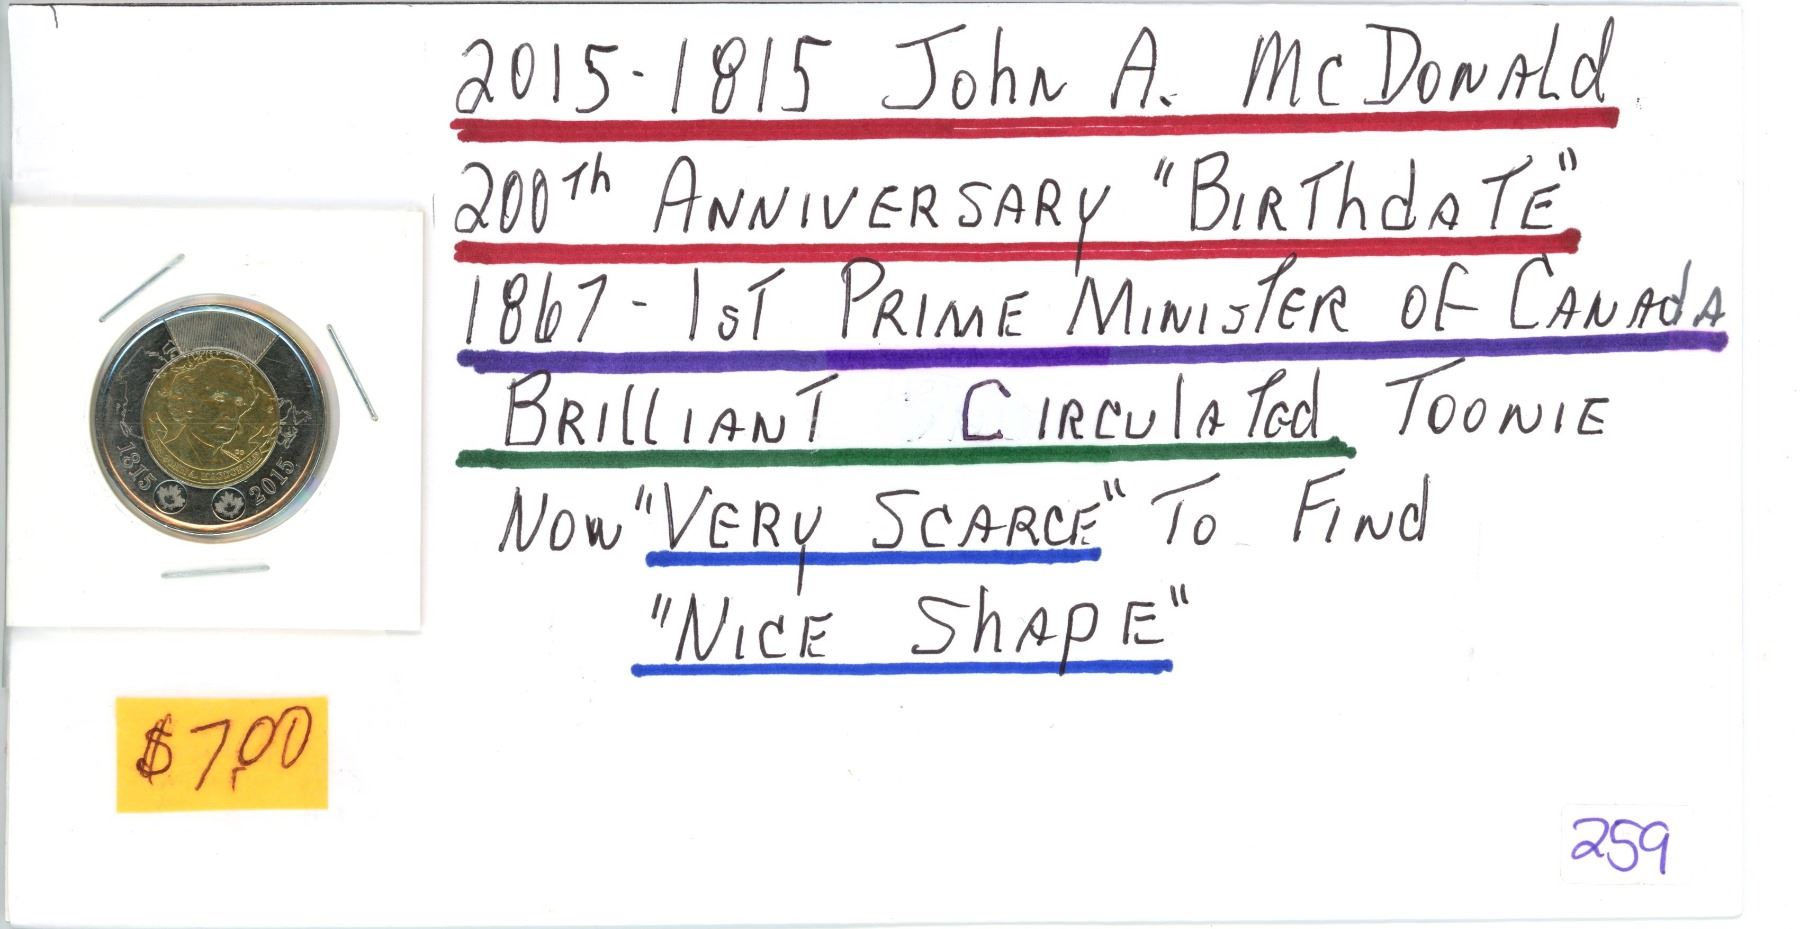 2015-1815 John A. McDonald
200th Anniversary "Birthdate"
1867 - 1st Prime Minister of Canada
Brilliant Circulated Toonie
Now "Very Scarce" To Find
"Nice Shape"
1815 2015
$7.00
259